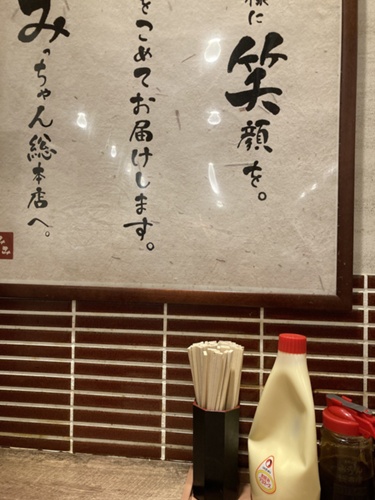 様に笑顔を。
をこめてお届けします。
みっちゃん総本店へ。